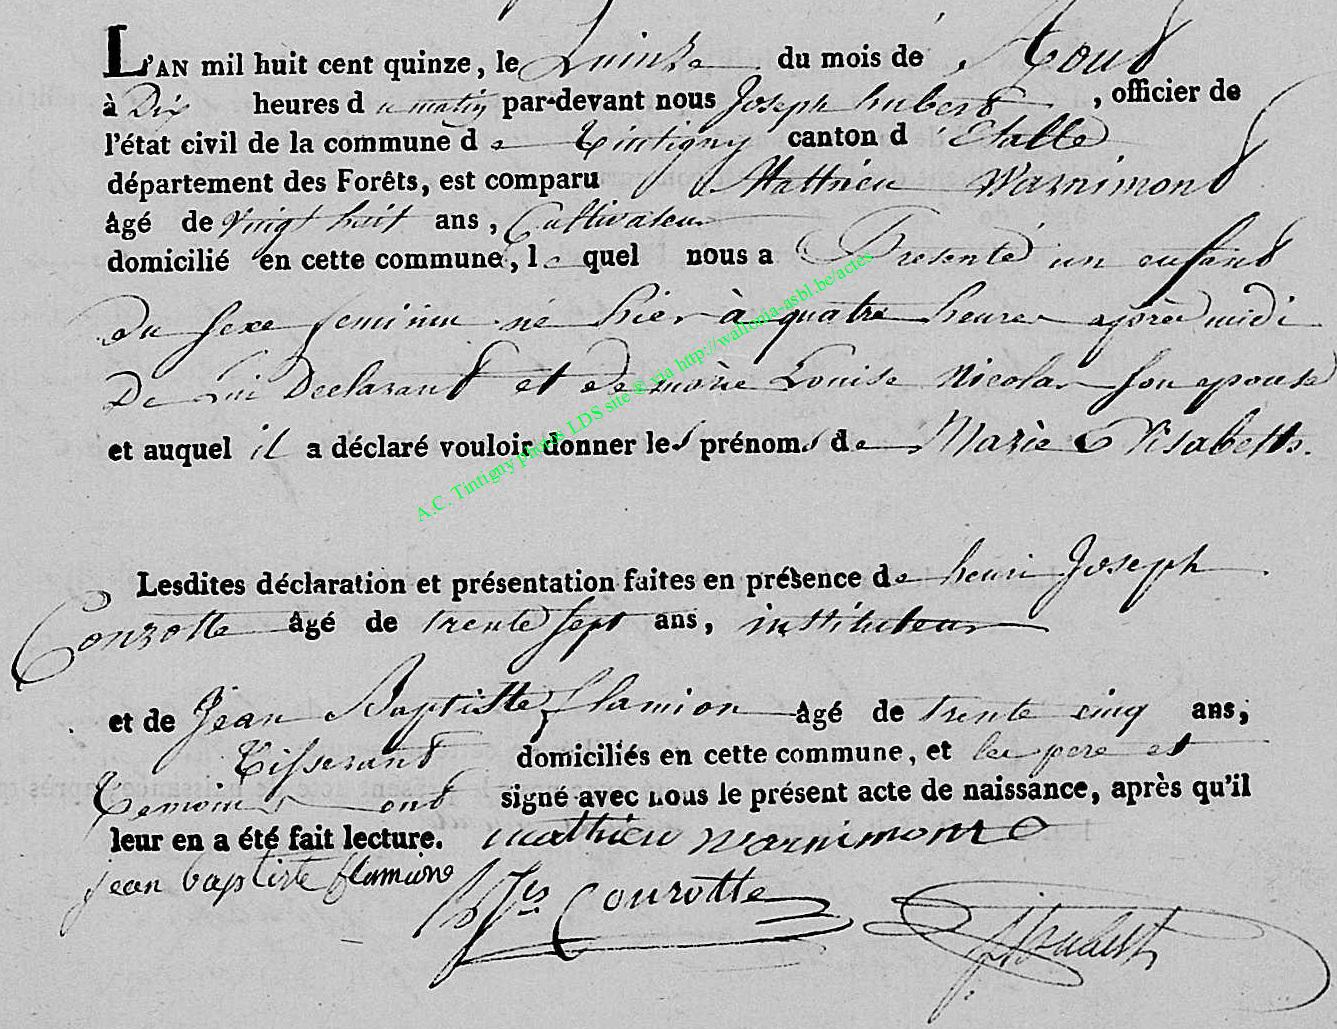 L'AN mil huit cent quinze, le Quinze du mois de Aout
à Dix heures du matin par-devant nous Joseph hubert, officier de
l'état civil de la commune de Tintigny canton d'Etalle
département des Forêts, est comparu Matthieu Warnimont
âgé de vingt huit ans, Cultivateur
domicilié en cette commune, lequel nous a Presenté un enfant
du sexe feminin né hier à quatre heures après midi
De Lui Declarant et de marie Louise Nicolas son epouse
et auquel il a déclaré vouloir donner les prénoms de Marie Elisabeth.
Lesdites déclaration et présentation faites en présence de henri Joseph
Courotte âgé de trente sept ans, instituteur
et de Jean Baptiste flamion âgé de trente cinq ans,
Tisserant domiciliés en cette commune, et les pere et
Temoins ont signé avec nous le présent acte de naissance, après qu'il
leur en a été fait lecture. mathieu warnimont
jean baptiste flamion hJs Courotte J hubert
A.C. Tintigny photos LDS site © via http://wallonia-asbl.be/actes